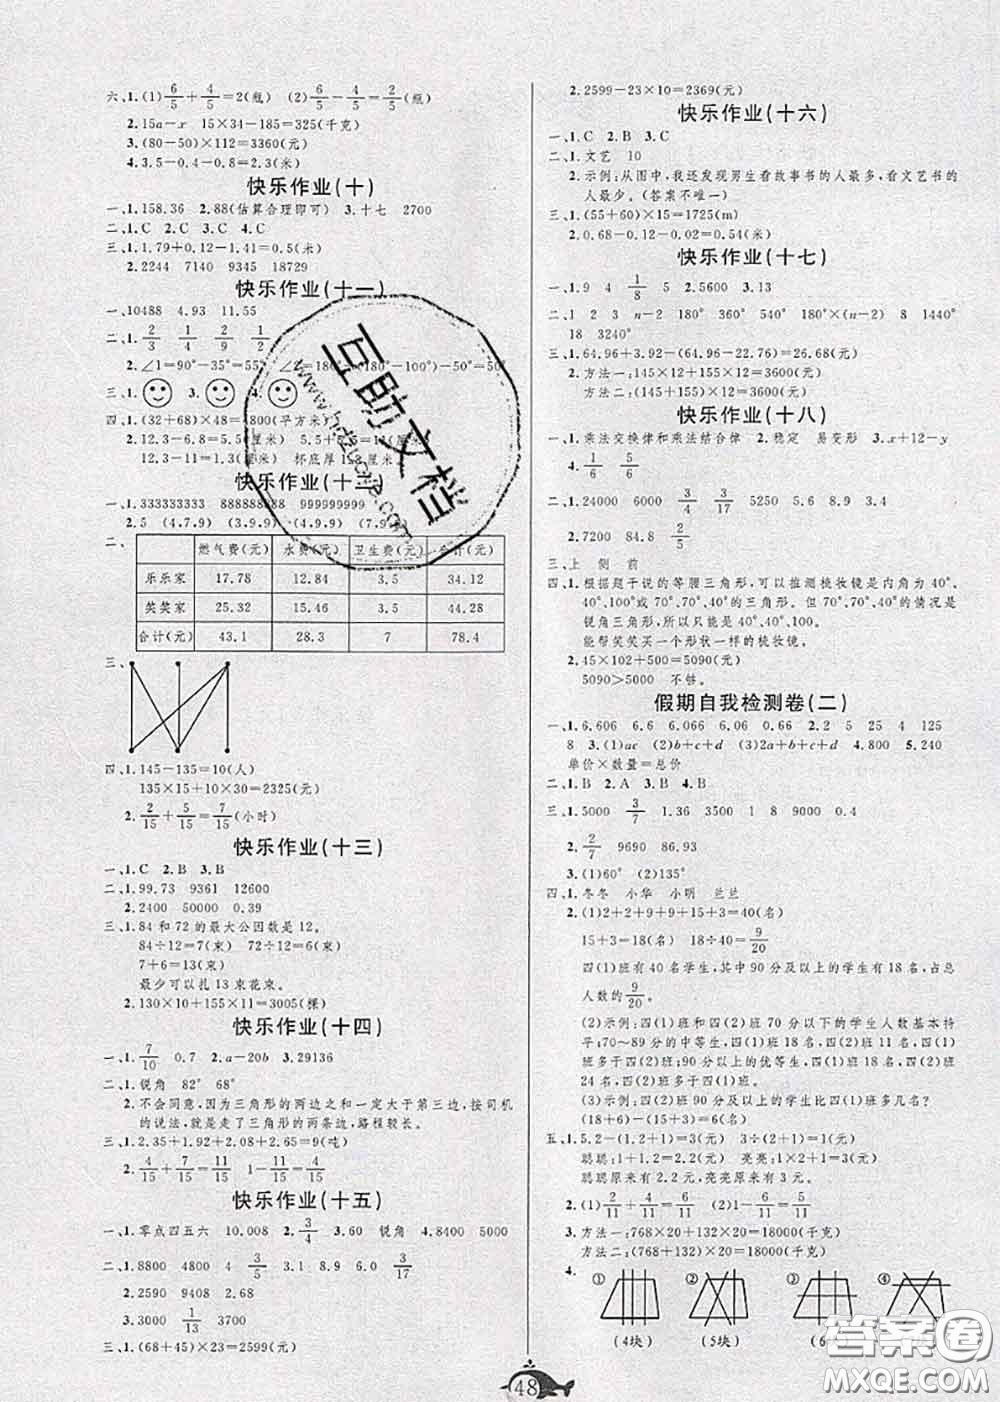 六、1.(1)6/5+4/5=2(瓶) (2)6/5-4/5=2/5(瓶)
2.15a-x 15×34-185=325(千克)
3.(80-50)×112=3360(元)
4.3.5-0.4-0.8=2.3(米)
快乐作业(十)
一、1.158.36 2.88(估算合理即可) 3.十七 2700
二、1.C 2.C 3.C 4.C
三、1.1.79+0.12-1.41=0.5(米)
2.2244 7140 9345 18729
快乐作业(十一)
一、10488 4.93 11.55
二、1.2/3 1/4 1/2
2.∠1=90°-35°=55° ∠2=(180°-(180°-100°)-50°=50°
三、1. 3. 4.
四、1.(32+68)×48=4800(平方米)
2.12.3-6.8=5.5(厘米) 5.5+5.5=11(厘米)
12.3-11=1.3(厘米) 杯底厚1.3厘米
快乐作业(十二)
一、1.333333333 888888888 999999999
2.5 (4,7,9) (3,9,9) (5,9,9) (7,9,9)
二、
燃气费(元) 水费(元) 卫生费(元) 合计(元)
乐乐家 17.78 12.84 3.5 34.12
笑笑家 25.32 15.46 3.5 44.28
合计(元) 43.1 28.3 7 78.4
三、
四、1.145-135=10(人)
135×15+10×30=2325(元)
2.2/15+5/15=7/15(小时)
快乐作业(十三)
一、1.C 2.B 3.B
二、1.99.73 9361 12600
2.2400 50000 0.39
三、1.84和72的最大公因数是12。
84÷12=7(束) 72÷12=6(束)
7+6=13(束)
最少可以扎13束花束。
2.130×10+155×11=3005(棵)
快乐作业(十四)
一、1.7/10 0.7 2.a-20b 3.29136
二、1.锐角 82° 68°
2.不会同意,因为三角形的两边之和一定大于第三边,按司机
的说法,就是走了三角形的两条边,路程较长。
三、1.2.35+1.92+2.08+2.65=9(吨)
2.4/15+7/15=11/15 1-11/15=4/15
快乐作业(十五)
一、1.零点四五六 10.008 2.3/4 3.60 锐角 4.8400 5000
二、1.8800 4800 4 3/5 3.1 8.9 6.0 3/17
2.2590 9408 2.68
3.3000 1/13 3700
三、1.(68+45)×23=2599(元)
2.2599-23×10=2369(元)
快乐作业(十六)
一、1.C 2.B 3.C
二、1.文艺 10
2.示例:从图中,我还发现男生看故事书的人最多,看文艺书的
人最少。(答案不唯一)
三、1.(55+60)×15=1725(m)
2.0.68-0.12-0.02=0.54(米)
快乐作业(十七)
一、1.9 4 1/8 5 2.5600 3.13
二、1 2 3 n-2 180° 360° 540° 180°×(n-2) 8 1440°
18 3240°
三、1.64.96+3.92-(64.96-22.76)=26.68(元)
2.方法一:145×12+155×12=3600(元)
方法二:(145+155)×12=3600(元)
快乐作业(十八)
一、1.乘法交换律和乘法结合律 2.稳定 易变形 3.x+12-y
4.1/6 5/6
二、1.24000 6000 3/4 3/4 5250 5.6 8.9 3.4
2.7200 84.8 2/5
三、上 侧 前
四、1.根据题干说的等腰三角形,可以推测梳妆镜是内角为40°、
40°、100°或70°、70°、40°的三角形。但70°、70°、40°的情况是
锐角三角形,所以只能是40°、40°、100°。
能帮笑笑买一个形状一样的梳妆镜。
2.45×102+500=5090(元)
5090>5000 不够。
假期自我检测卷(二)
一、1.6.606 6.6 6.066 6.06 0.66 2.2 5 25 4 125
8 3.(1)ac (2)b+c+d (3)2a+b+c+d 4.800 5.240
单价×数量=总价
二、1.B 2.A 3.B 4.B
三、1.5000 3/7 1.36 3500 1 8 9000 0.4
2.2/7 9690 86.93
3.(1)60° (2)135°
四、1.冬冬 小华 小明 兰兰
2.(1)2+2+9+9+15+3=40(名)
15+3=18(名) 18÷40=9/20
四(1)班有40名学生,其中90分及以上的学生有18名,占总
人数的9/20。
(2)示例:四(1)班和四(2)班70分以下的学生人数基本持
平;70~89分的中等生,四(1)班18名,四(2)班11名,四(1)
班多于四(2)班;90分以上的优等生,四(1)班18名,四(2)班
24名,四(2)班多于四(1)班。
(3)示例:四(2)班90分及以上的学生比四(1)班多几名?
(18+6)-(15+3)=6(名)
五、1.5.2-(1+1.2)=3(元) 3÷(2+1)=1(元)
聪聪:1+1.2=2.2(元) 亮亮:1×2+1=3(元)
聪聪原来有2.2元,亮亮原来有3元。
2.(1)2/11+4/11=6/11 (2)1-6/11=5/11
3.方法一:768×20+132×20=18000(千克)
方法二:(768+132)×20=18000(千克)
4.① ② ③ ④
(4块) (5块) (6
48
互助文档
www.hdzuoye.com
答案圈
MXQE.COM